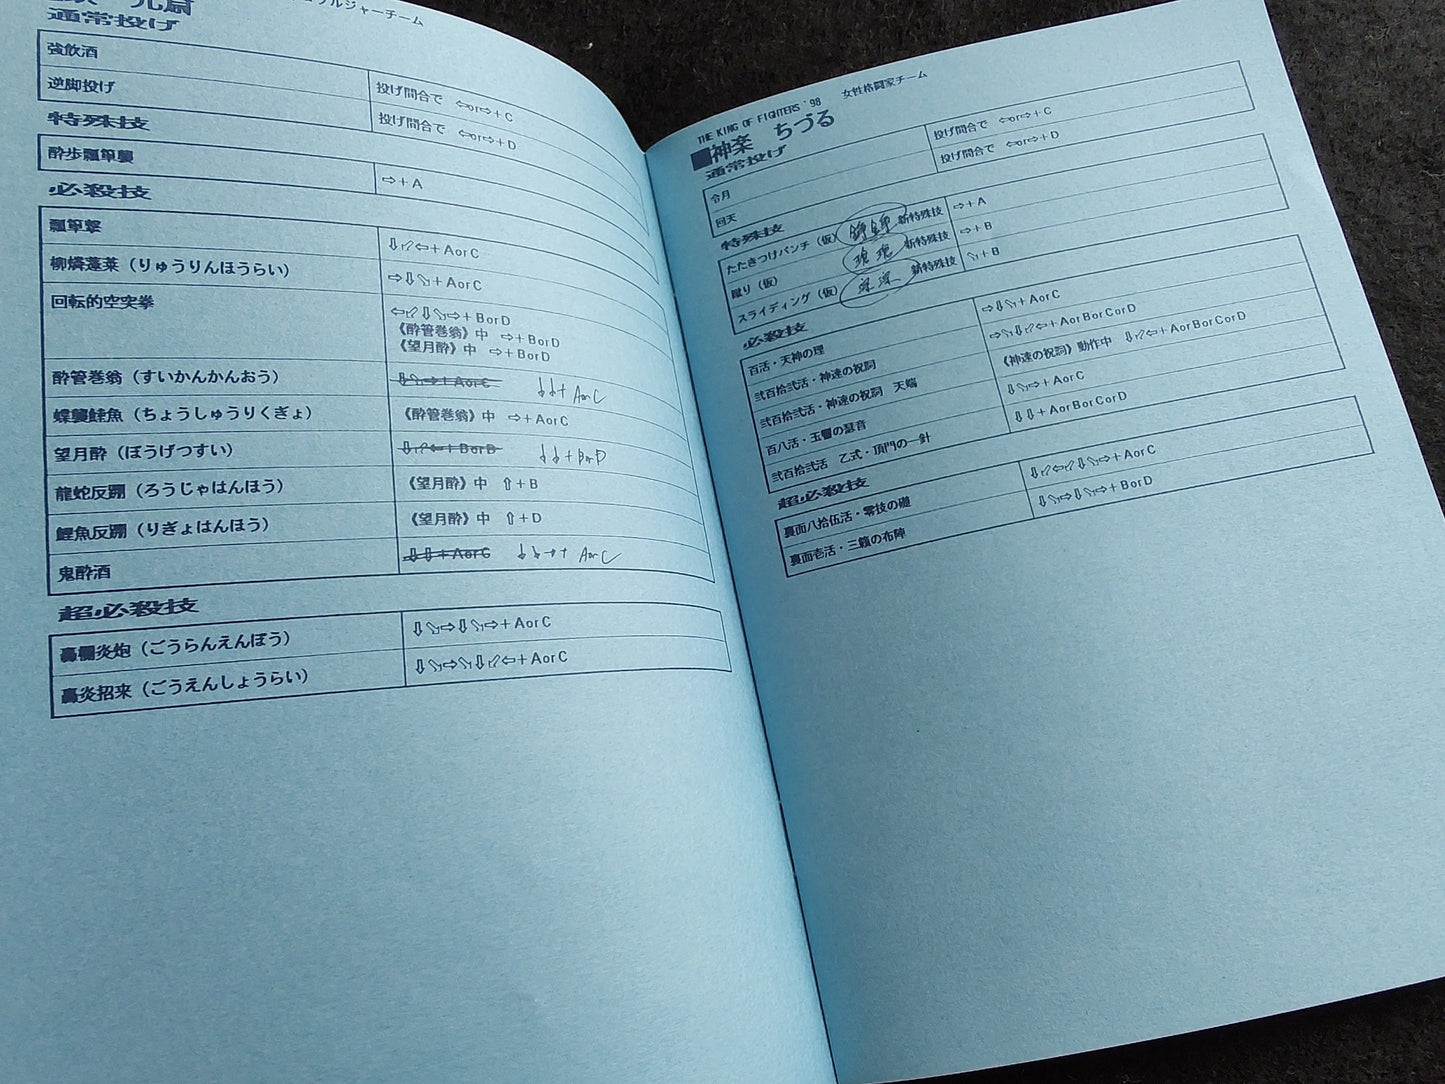 ョナルジャーチーム
元齋
通常投げ
強飲酒 投げ間合で ⇦or⇨+C
逆脚投げ 投げ間合で ⇦or⇨+D
特殊技
酔歩瓢箪襲 ⇨+A
必殺技
瓢箪撃 ⇩⬃⇦+AorC
柳燐蓬莱（りゅうりんほうらい） ⇨⇩⬂+AorC
回転的空突拳 ⇦⬃⇩⬂⇨+BorD
《酔管巻翁》中 ⇨+BorD
《望月酔》中 ⇨+BorD
酔管巻翁（すいかんかんおう） ⇩⬂⇨+AorC ↓↓+AorC
蝶襲鯥魚（ちょうしゅうりくぎょ） 《酔管巻翁》中 ⇨+AorC
望月酔（ぼうげつすい） ⇩⬃⇦+BorD ↓↓+BorD
龍蛇反踊（ろうじゃはんほう） 《望月酔》中 ⇧+B
鯉魚反踊（りぎょはんほう） 《望月酔》中 ⇧+D
鬼酔酒 ⇩⇩+AorC ↓↓→+AorC
超必殺技
轟欄炎炮（ごうらんえんぽう） ⇩⬂⇨⇩⬂⇨+AorC
轟炎招来（ごうえんしょうらい） ⇩⬂⇨⬂⇩⬃⇦+AorC
THE KING OF FIGHTERS '98 女性格闘家チーム
■神楽 ちづる
通常投げ
令月 投げ間合で ⇦or⇨+C
回天 投げ間合で ⇦or⇨+D
特殊技
たたきつけパンチ（仮） 新特殊技 ⇨+A
蹴り（仮） 新特殊技 ⇨+B
スライディング（仮） 新特殊技 ⬂+B
必殺技
百活・天神の理 ⇨⇩⬂+AorC
弐百拾弐活・神速の祝詞 ⇨⬂⇩⬃⇦+AorBorCorD
弐百拾弐活・神速の祝詞 天瑞 《神速の祝詞》動作中 ⇩⬃⇦+AorBorCorD
百八活・玉響の瑟音 ⇩⬂⇨+AorC
弐百拾弐活 乙式・頂門の一針 ⇩⇩+AorBorCorD
超必殺技
裏面八拾伍活・零技の礎 ⇩⬃⇦⬃⇩⬂⇨+AorC
裏面壱活・三籟の布陣 ⇩⬂⇨⇩⬂⇨+BorD